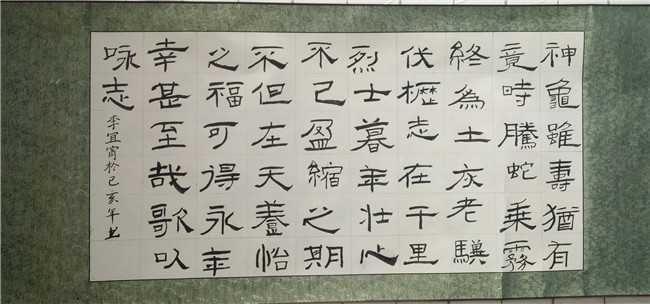 神龜雖壽猶有
竟時騰蛇乘霧
終為土灰老驥
伏櫪志在千里
烈士暮年壯心
不已盈縮之期
不但在天養怡
之福可得永年
幸甚至哉歌以
咏志
李宜宵於己亥年书